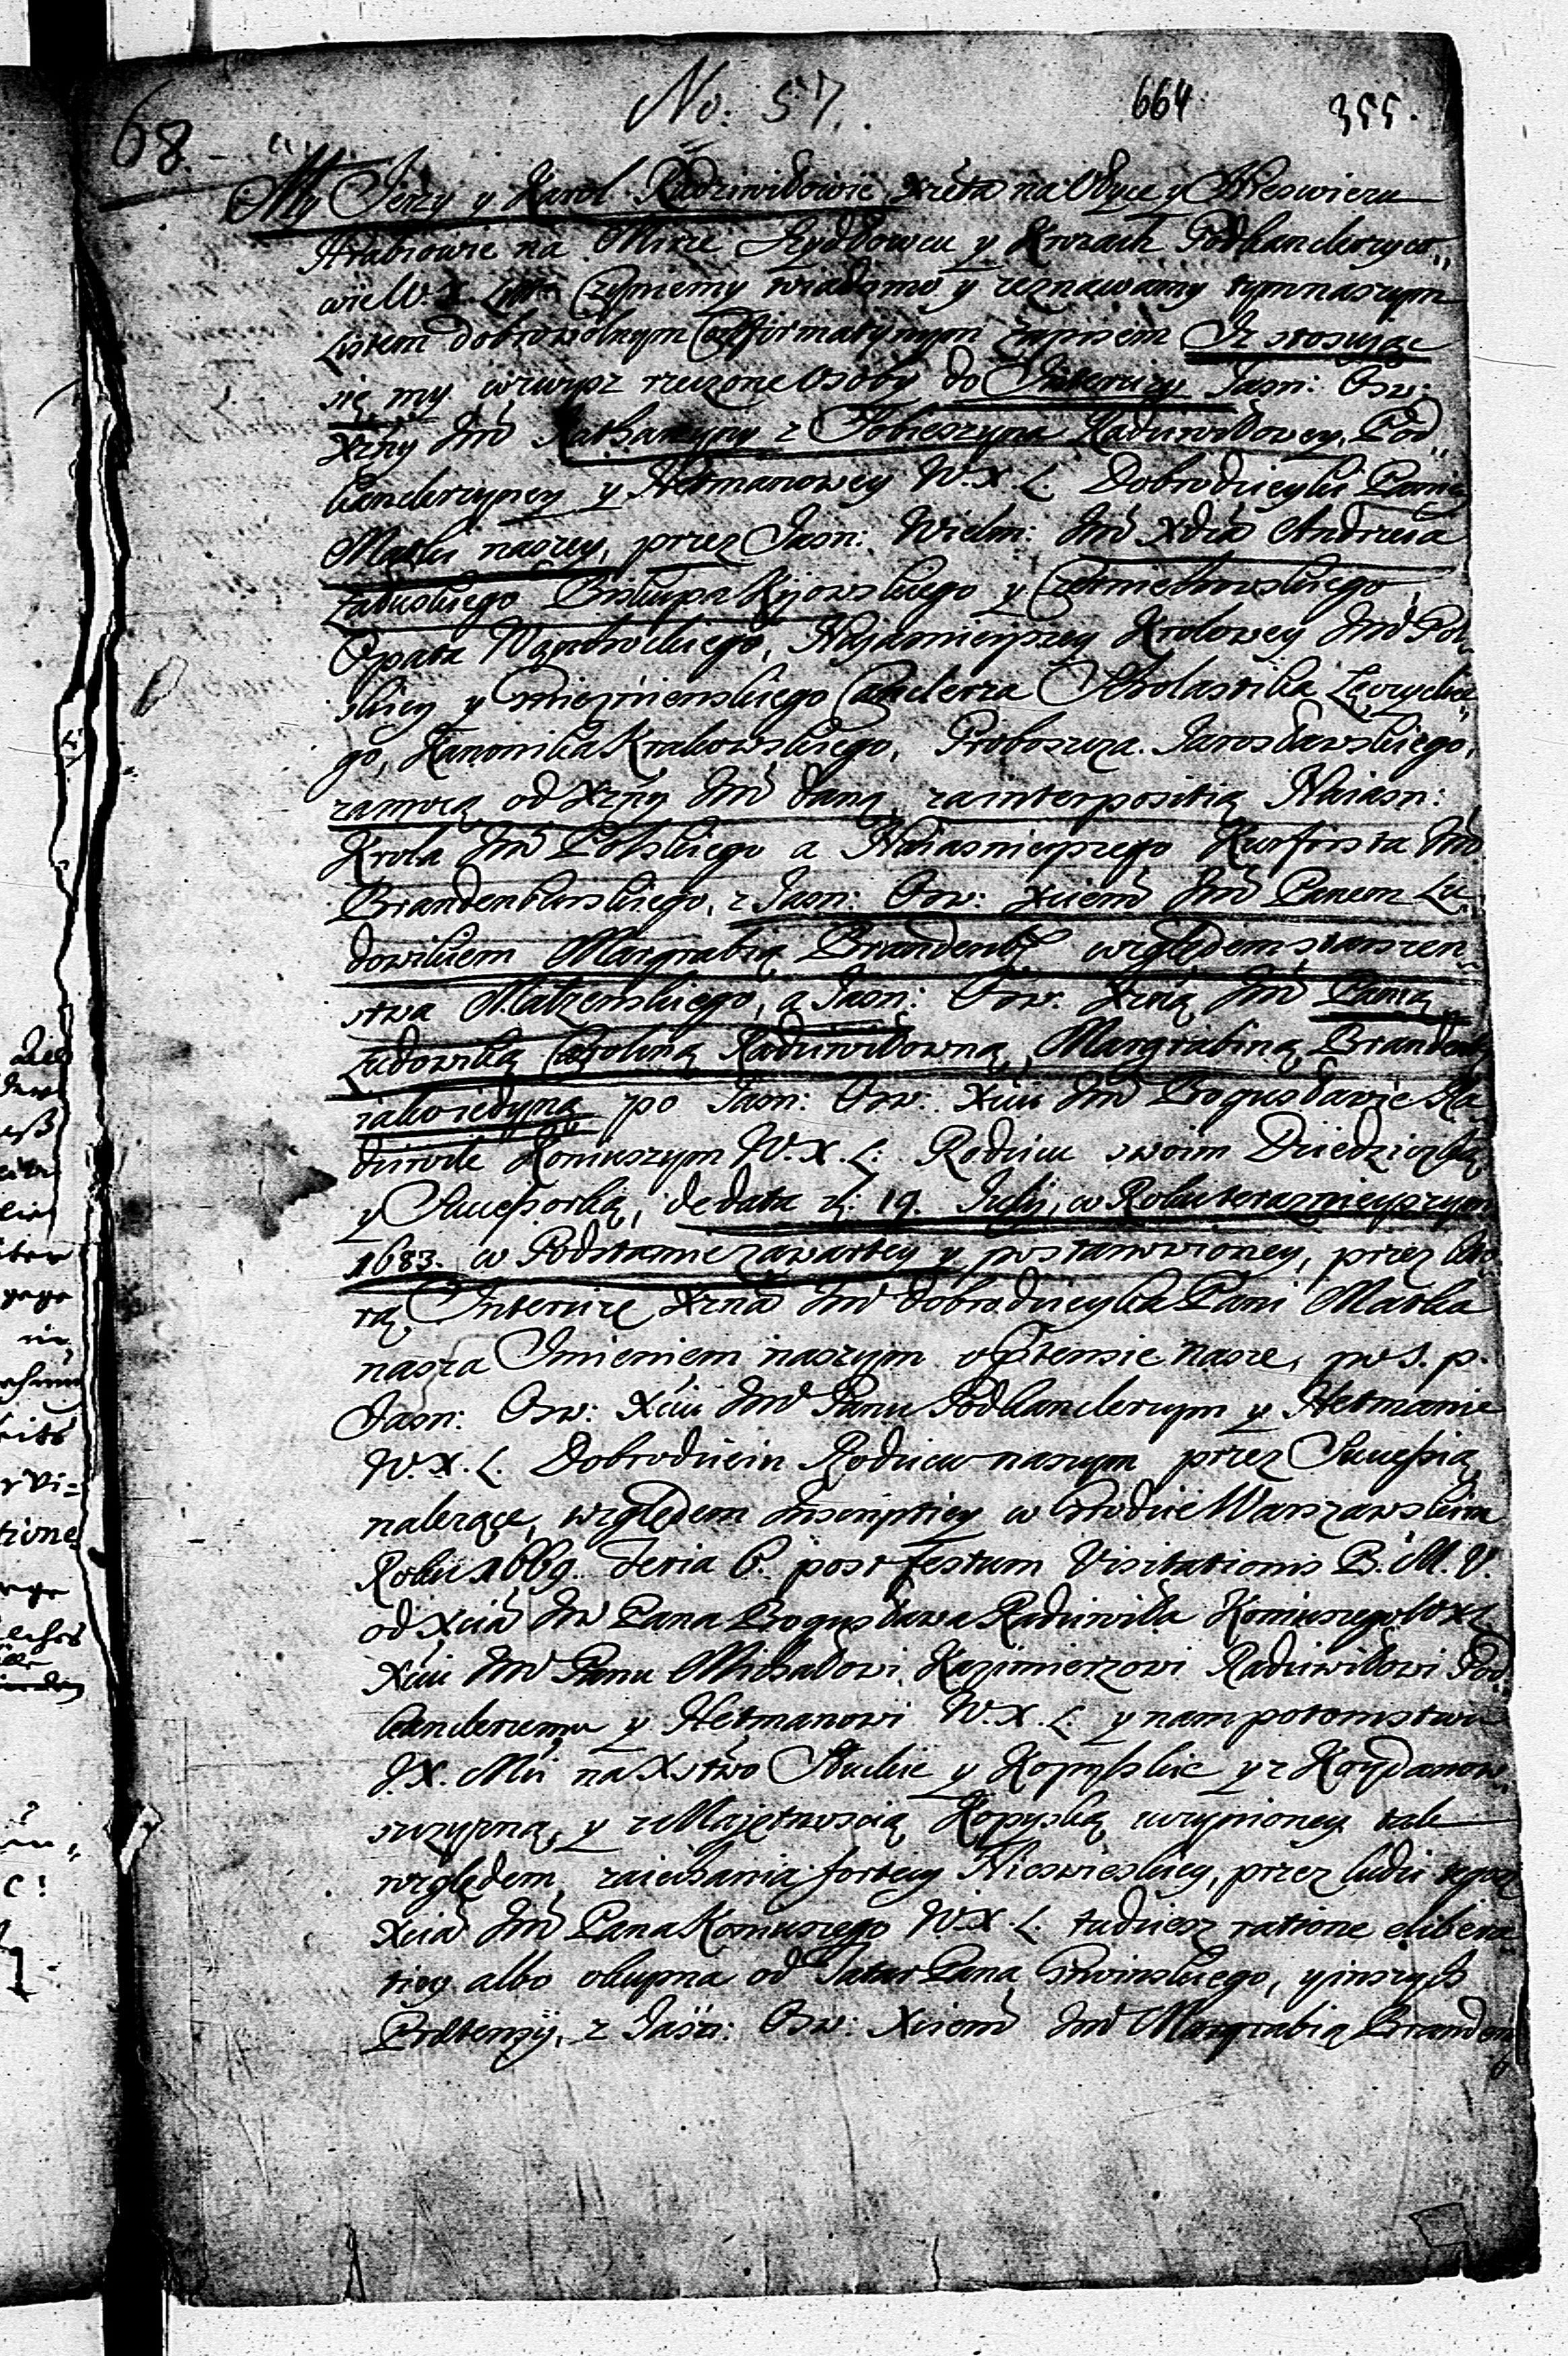 No: 57.
664
355.
68.
My Jerzy y Karol Radziwiłłowie Xżęta na Ołyce y Nieswieżu
Hrabiowie na Mirze Szydłowcu y Krożach Podkanclerzyco„
wie W. X. Litt: Czyniemy wiadomo y zeznawamy tym naszym
Listem dobrowolnym Confirmatynym zapisem Iż stosuiąc
się my wzwysz rzeczone Osoby do Intercizy Jasn: Osw:
Xżny Jmć Katharzyny z Sobieszyna Radziwiłłowey, Pod„
kanclerzyney y Hetmanowey W. X. L. Dobrodzieyki Paniey
Matki naszey, przez Jasn: Wielm: Jmć Xdza Andrzeia
Załuskiego Biskupa Kijowskiego y Czerniechowskiego,
Opata Wąchockiego, Najasnieyszey Krolowey Jmć Pol„
skiey y Gnieznienskiego Canclerza Scholastika Łęczyckie„
go, Kanonika Krakowskiego, Proboszcza Jarosławskiego,
zamocą od Xżny Jmć daną, za interpositią Naiasn:
Krola Jmć Polskiego a Naiasnieyszego Kurfirsta Jmć
Brandenburskiego, z Jasn: Osw: Xciem Jmć Panem Lu„
dowikiem Margrabią Brandenb: względem starszen„
stwa Małżenskiego, a Jasn: Osw: Xżną Jmć Panią
Ludowiką Caroliną Radziwiłłowną, Margrabiną Brandenb:
iako iedyną po Jasn: Osw: Xciu Jmć Bogusławie Ra„
dziwile Koniuszym W. X. L: Rodzicu swoim Dziedziczką
y Successorką, de data d: 19. Julij, w Roku teraznieyszym
1683. w Podstamie zawartey y postanowioney, przez kto„
rą Intercizę Xżna Jmć Dobrodzieyka Pani Matka
nasza Imieniem naszym Pretensie nasze, po s. p.
Jasn: Osw: Xciu Jmć Panu Podkanclerzym y Hetmanie
W. X. L. Dobrodzieiu Rodzicu naszym przez Successią
należące, względem Inscriptiey w Grodzie Warszawskim
Roku 1669. Feria 6. post festum Visitationis B. M. V.
od Xcia Jmć Pana Bogusława Radziwiła Koniuszego W X L
Xciu Jmć Panu Michałowi Kazimierzowi Radziwiłowi Pod„
kanclerzemu y Hetmanowi W. X. L. y nam potomstwu
J X. Mci na Xstwo Słuckie y Kopylskie y z Koydanow„
szczyzną, y z Majętnoscią Kopyską uczynioney tak
względem zaiechania fortecy Nieswieskiey, przez ludzi tegoż
Xcia Jmć Pana Koniuszego W. X. L. tudziesz ratione elibera„
tiey albo okupna od Tatar Pana Gninskiego, y inszych
Prætensij, z Jasn: Osw: Xciem Jmć Margrabią Branden„